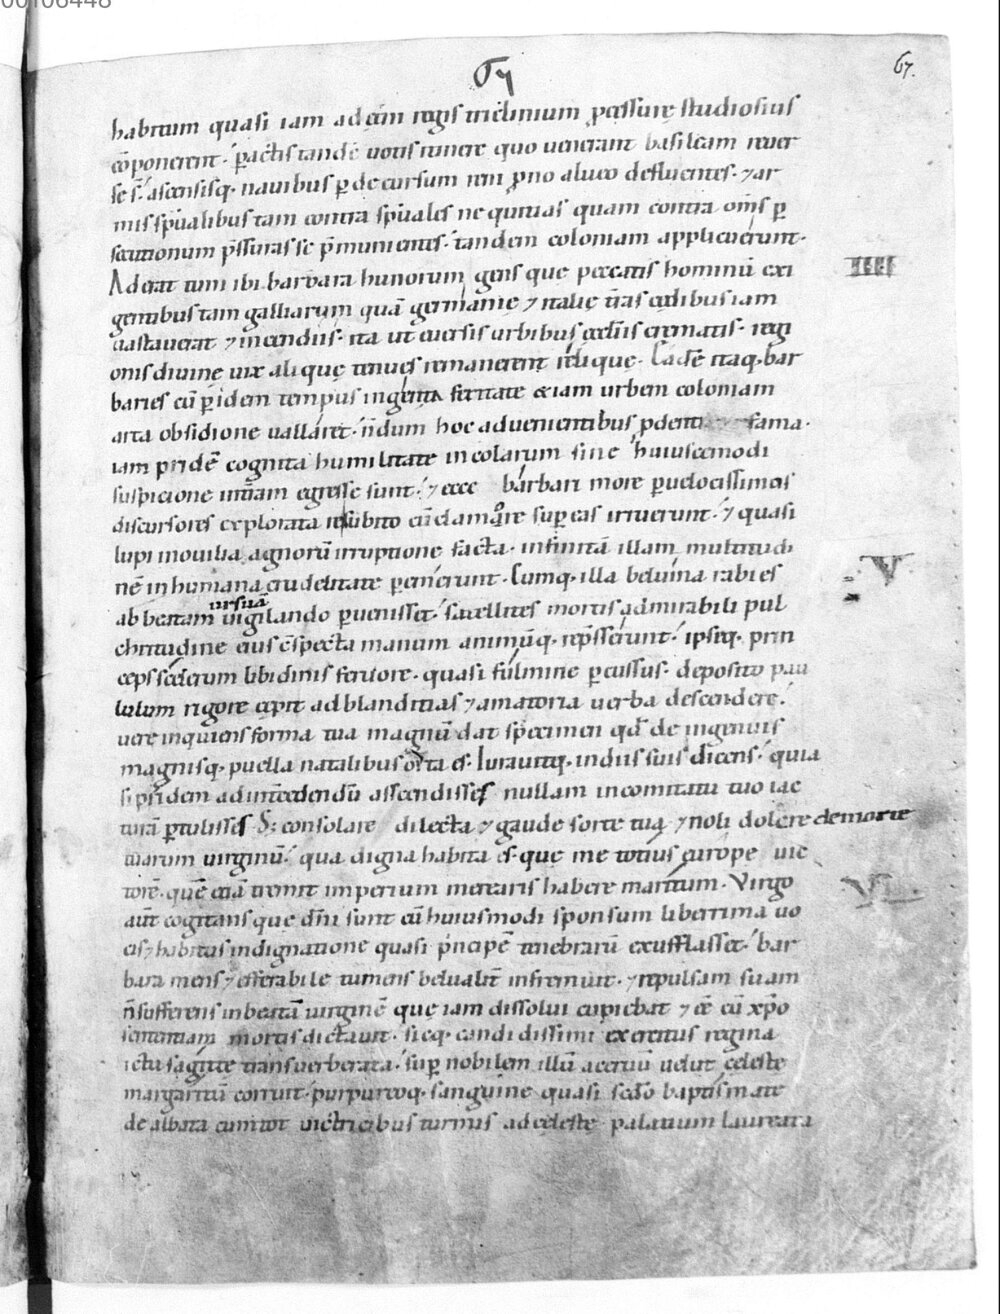 00106448
67
67.
habitum quasi iam ad cená regis triclinium processurę studiosius
cōponerent. p̄actis tandē uotis itinere quo uenerant basileam reuer
sę s̄. ascensisq; nauibus p decursum reni p̄no alueo defluentes. ⁊ ar
mis sp̄ualibus tam contra sp̄uales nequitias quam contra om̄s p
secutionum p̄ssuras se p̄munientes. tandem coloniam applicuerunt.
IIII
Aderat tum ibi barbara hunorum gens que peccatis hominū exi
gentibus tam galliarum quā germanię ⁊ italię t̄ras cędibus iam
uastauerat ⁊ incendiis. ita ut euersis urbibus ęccl̄iis crematis. regi
onis diuinę uix aliquę tenues remanerent reliquę. Eadē itaq; bar
baries cū p idem tempus ingenti feritate etiam urbem coloniam
arta obsidione uallaret. n̄dum hoc aduenientibus pdente fama.
iam pridē cognita humilitate incolarum sine huiuscemodi
suspicione in t̄ram egressę sunt. ⁊ ecce barbari more p uelocissimos
discursores explorata re subito cū clamore sup eas irruerunt. ⁊ quasi
lupi in ouilia agnorū irruptione facta. infinitā illam multitudi
nē inhumana crudelitate p emerunt. Cumq; illa beluina rabies
V
ursulā
ab beatam iugilando p uenisset. satellites mortis admirabili pul
chritudine eius c̄specta manum animūq; rep̄sserunt. ipseq; prin
ceps scelerum libidinis feruore. quasi fulmine p cussus. deposito pau
lulum rigore cępit ad blanditias ⁊ amatoria uerba descendere.
uere inquiens forma tua magnū dat specimen qd̄ de ingenuis
magnisq; puella natalibus orta es. Iurauitq; in diis suis dicens. quia
si pridem ad intcedendū ascendisses nullam in comitatu tuo iac
turā p tulisses. S; consolare dilecta ⁊ gaude sorte tua ⁊ noli dolere de morte
tuarum uirginū. qua digna habita es. que me totius europę uic
torē. quē etiā tremit imperium merearis habere maritum. Virgo
VI
aūt cogitans que dn̄i sunt cū huiusmodi sponsum libertima uo
cis ⁊ habitus indignatione quasi p̄ncipē tenebrarū exufflasset. bar
bara mens ⁊ efferabile tumens belualit̄ infremuit. ⁊ repulsam suam
n̄ sufferens in beatā uirginē que iam dissolui cupiebat ⁊ eē cū xp̄o
sententiam mortis dictauit. sicq; candidissimi exercitus regina
ictu sagittę transuerberata. sup nobilem illū aceruū uelut cęleste
margaritū corruit. purpureoq; sanguine quasi sedo baptismate
dealbata cum tot uictricibus turmis ad cęleste palatium laureata